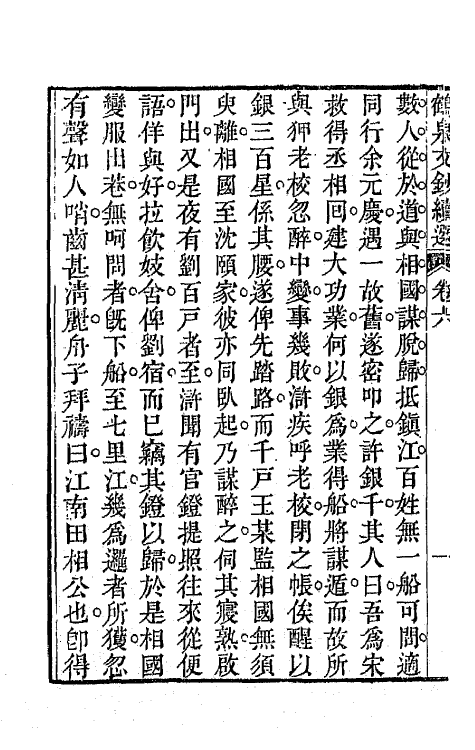 鶴泉文鈔續選 卷六
數人從於道與相國謀脫歸抵鎮江百姓無一船可問適
同行余元慶遇一故舊遂密叩之許銀千其人曰吾為宋
救得丞相回建大功業何以銀為業得船將謀遁而故所
與狎老校忽醉中變事幾敗滸疾呼老校閉之帳俟醒以
銀三百星係其腰遂俾先踏路而千戶王某監相國無須
臾離相國至沈頤家彼亦同臥起乃謀醉之伺其寢熟啟
門出又是夜有劉百戶者至滸聞有官鐙提照往來從便
語佯與好拉飲妓舍俾劉宿而已竊其鐙以歸於是相國
變服出巷無呵問者既下船至七里江幾為邏者所獲忽
有聲如人哨齒甚清麗舟子拜禱曰江南田相公也卽得